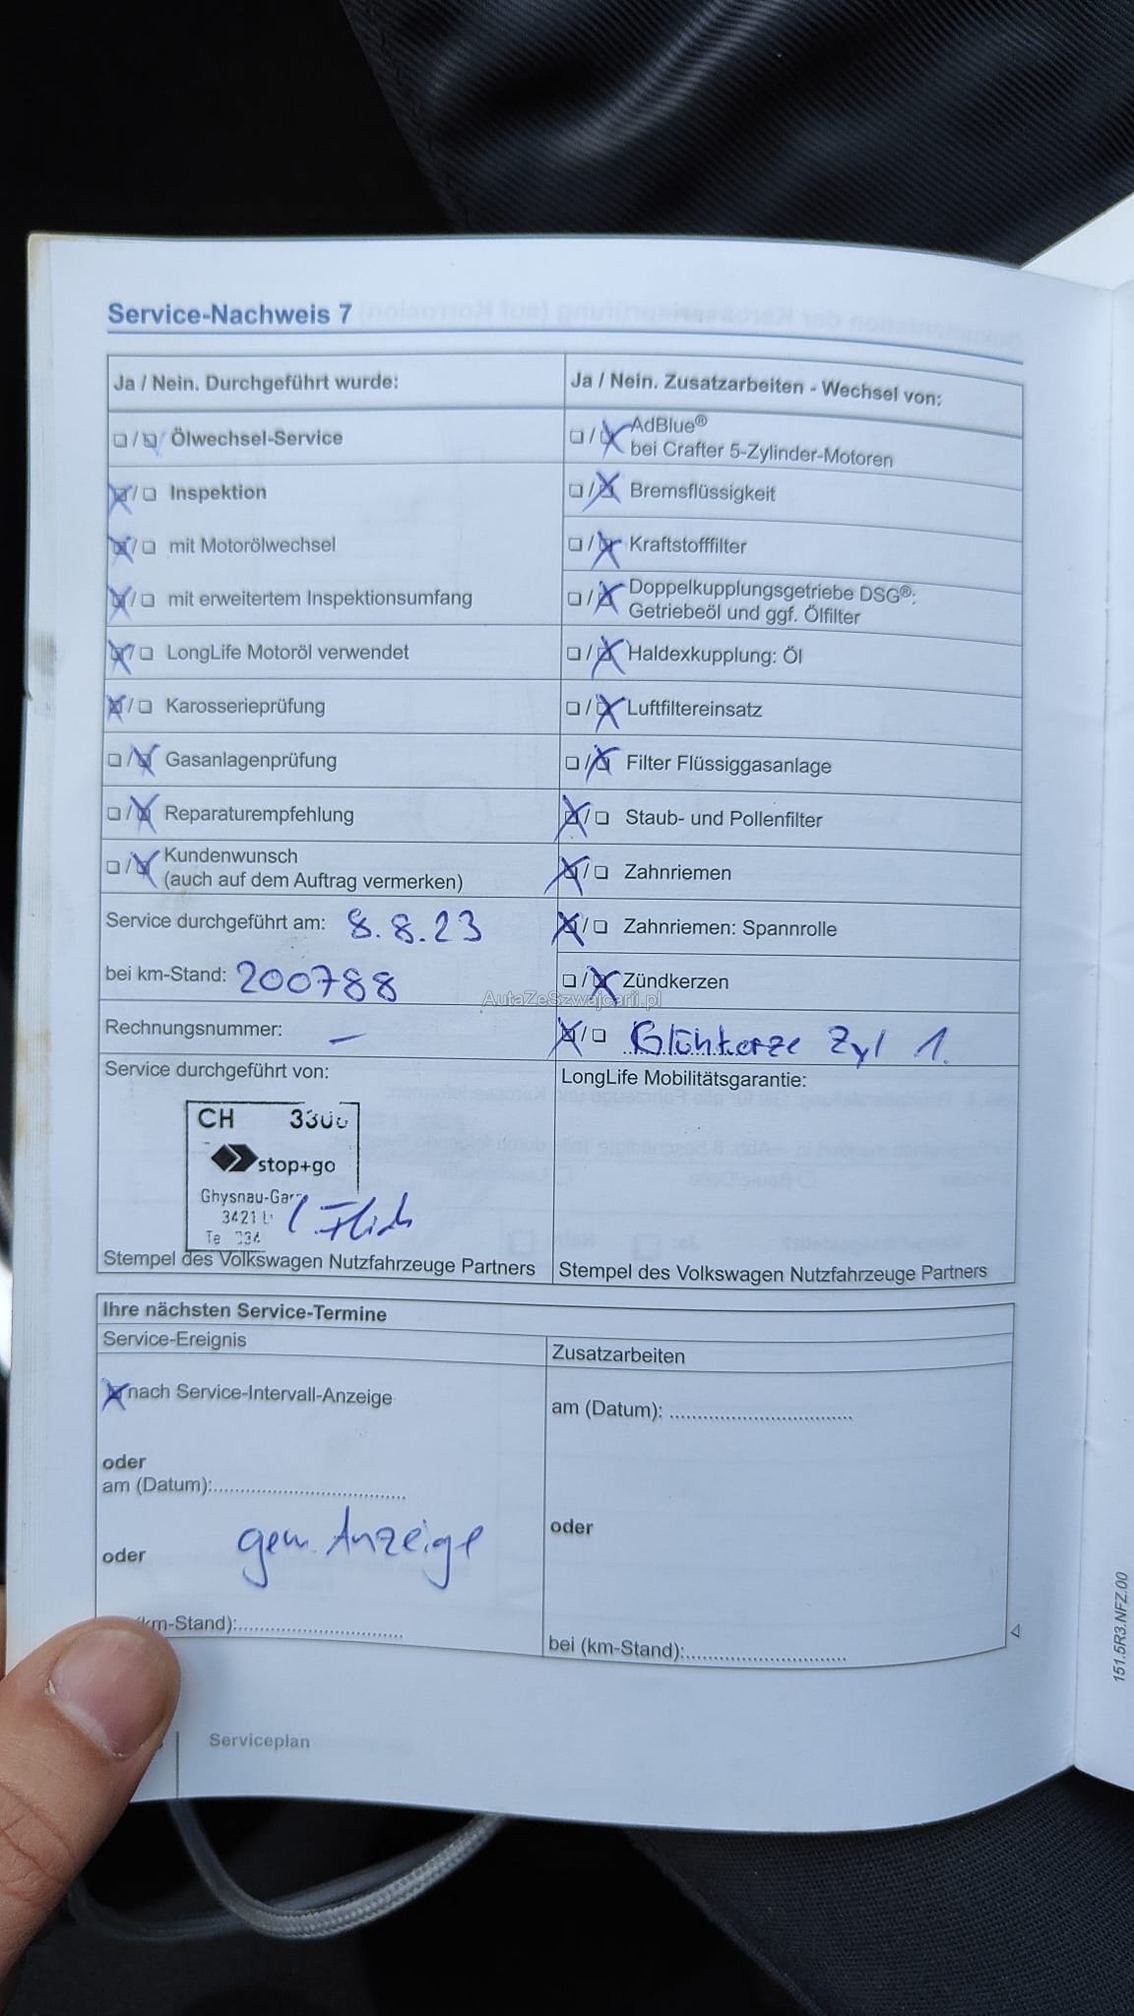 Service-Nachweis 7
Ja / Nein. Durchgeführt wurde:
☐ / ☒ Ölwechsel-Service
☒ / ☐ Inspektion
☒ / ☐ mit Motorölwechsel
☒ / ☐ mit erweitertem Inspektionsumfang
☒ / ☐ LongLife Motoröl verwendet
☒ / ☐ Karosserieprüfung
☐ / ☒ Gasanlagenprüfung
☐ / ☒ Reparaturempfehlung
☐ / ☒ Kundenwunsch
(auch auf dem Auftrag vermerken)
Service durchgeführt am: 8.8.23
bei km-Stand: 200788
Rechnungsnummer: –
Service durchgeführt von:
CH
stop+go
3421
Stempel des Volkswagen Nutzfahrzeuge Partners
Ja / Nein. Zusatzarbeiten - Wechsel von:
☐ / ☒ AdBlue®
bei Crafter 5-Zylinder-Motoren
☐ / ☒ Bremsflüssigkeit
☐ / ☒ Kraftstofffilter
☐ / ☒ Doppelkupplungsgetriebe DSG®:
Getriebeöl und ggf. Ölfilter
☐ / ☒ Haldexkupplung: Öl
☐ / ☒ Luftfiltereinsatz
☐ / ☒ Filter Flüssiggasanlage
☒ / ☐ Staub- und Pollenfilter
☒ / ☐ Zahnriemen
☒ / ☐ Zahnriemen: Spannrolle
☐ / ☒ Zündkerzen
☒ / ☐ Glühkerze Zyl 1.
LongLife Mobilitätsgarantie:
Stempel des Volkswagen Nutzfahrzeuge Partners
AutaZeSzwajcarii.pl
Ihre nächsten Service-Termine
Service-Ereignis
☒ nach Service-Intervall-Anzeige
oder
am (Datum):
gem. Anzeige
oder
km-Stand):
Zusatzarbeiten
am (Datum):
oder
bei (km-Stand):
Serviceplan
151.5R3.NFZ.00